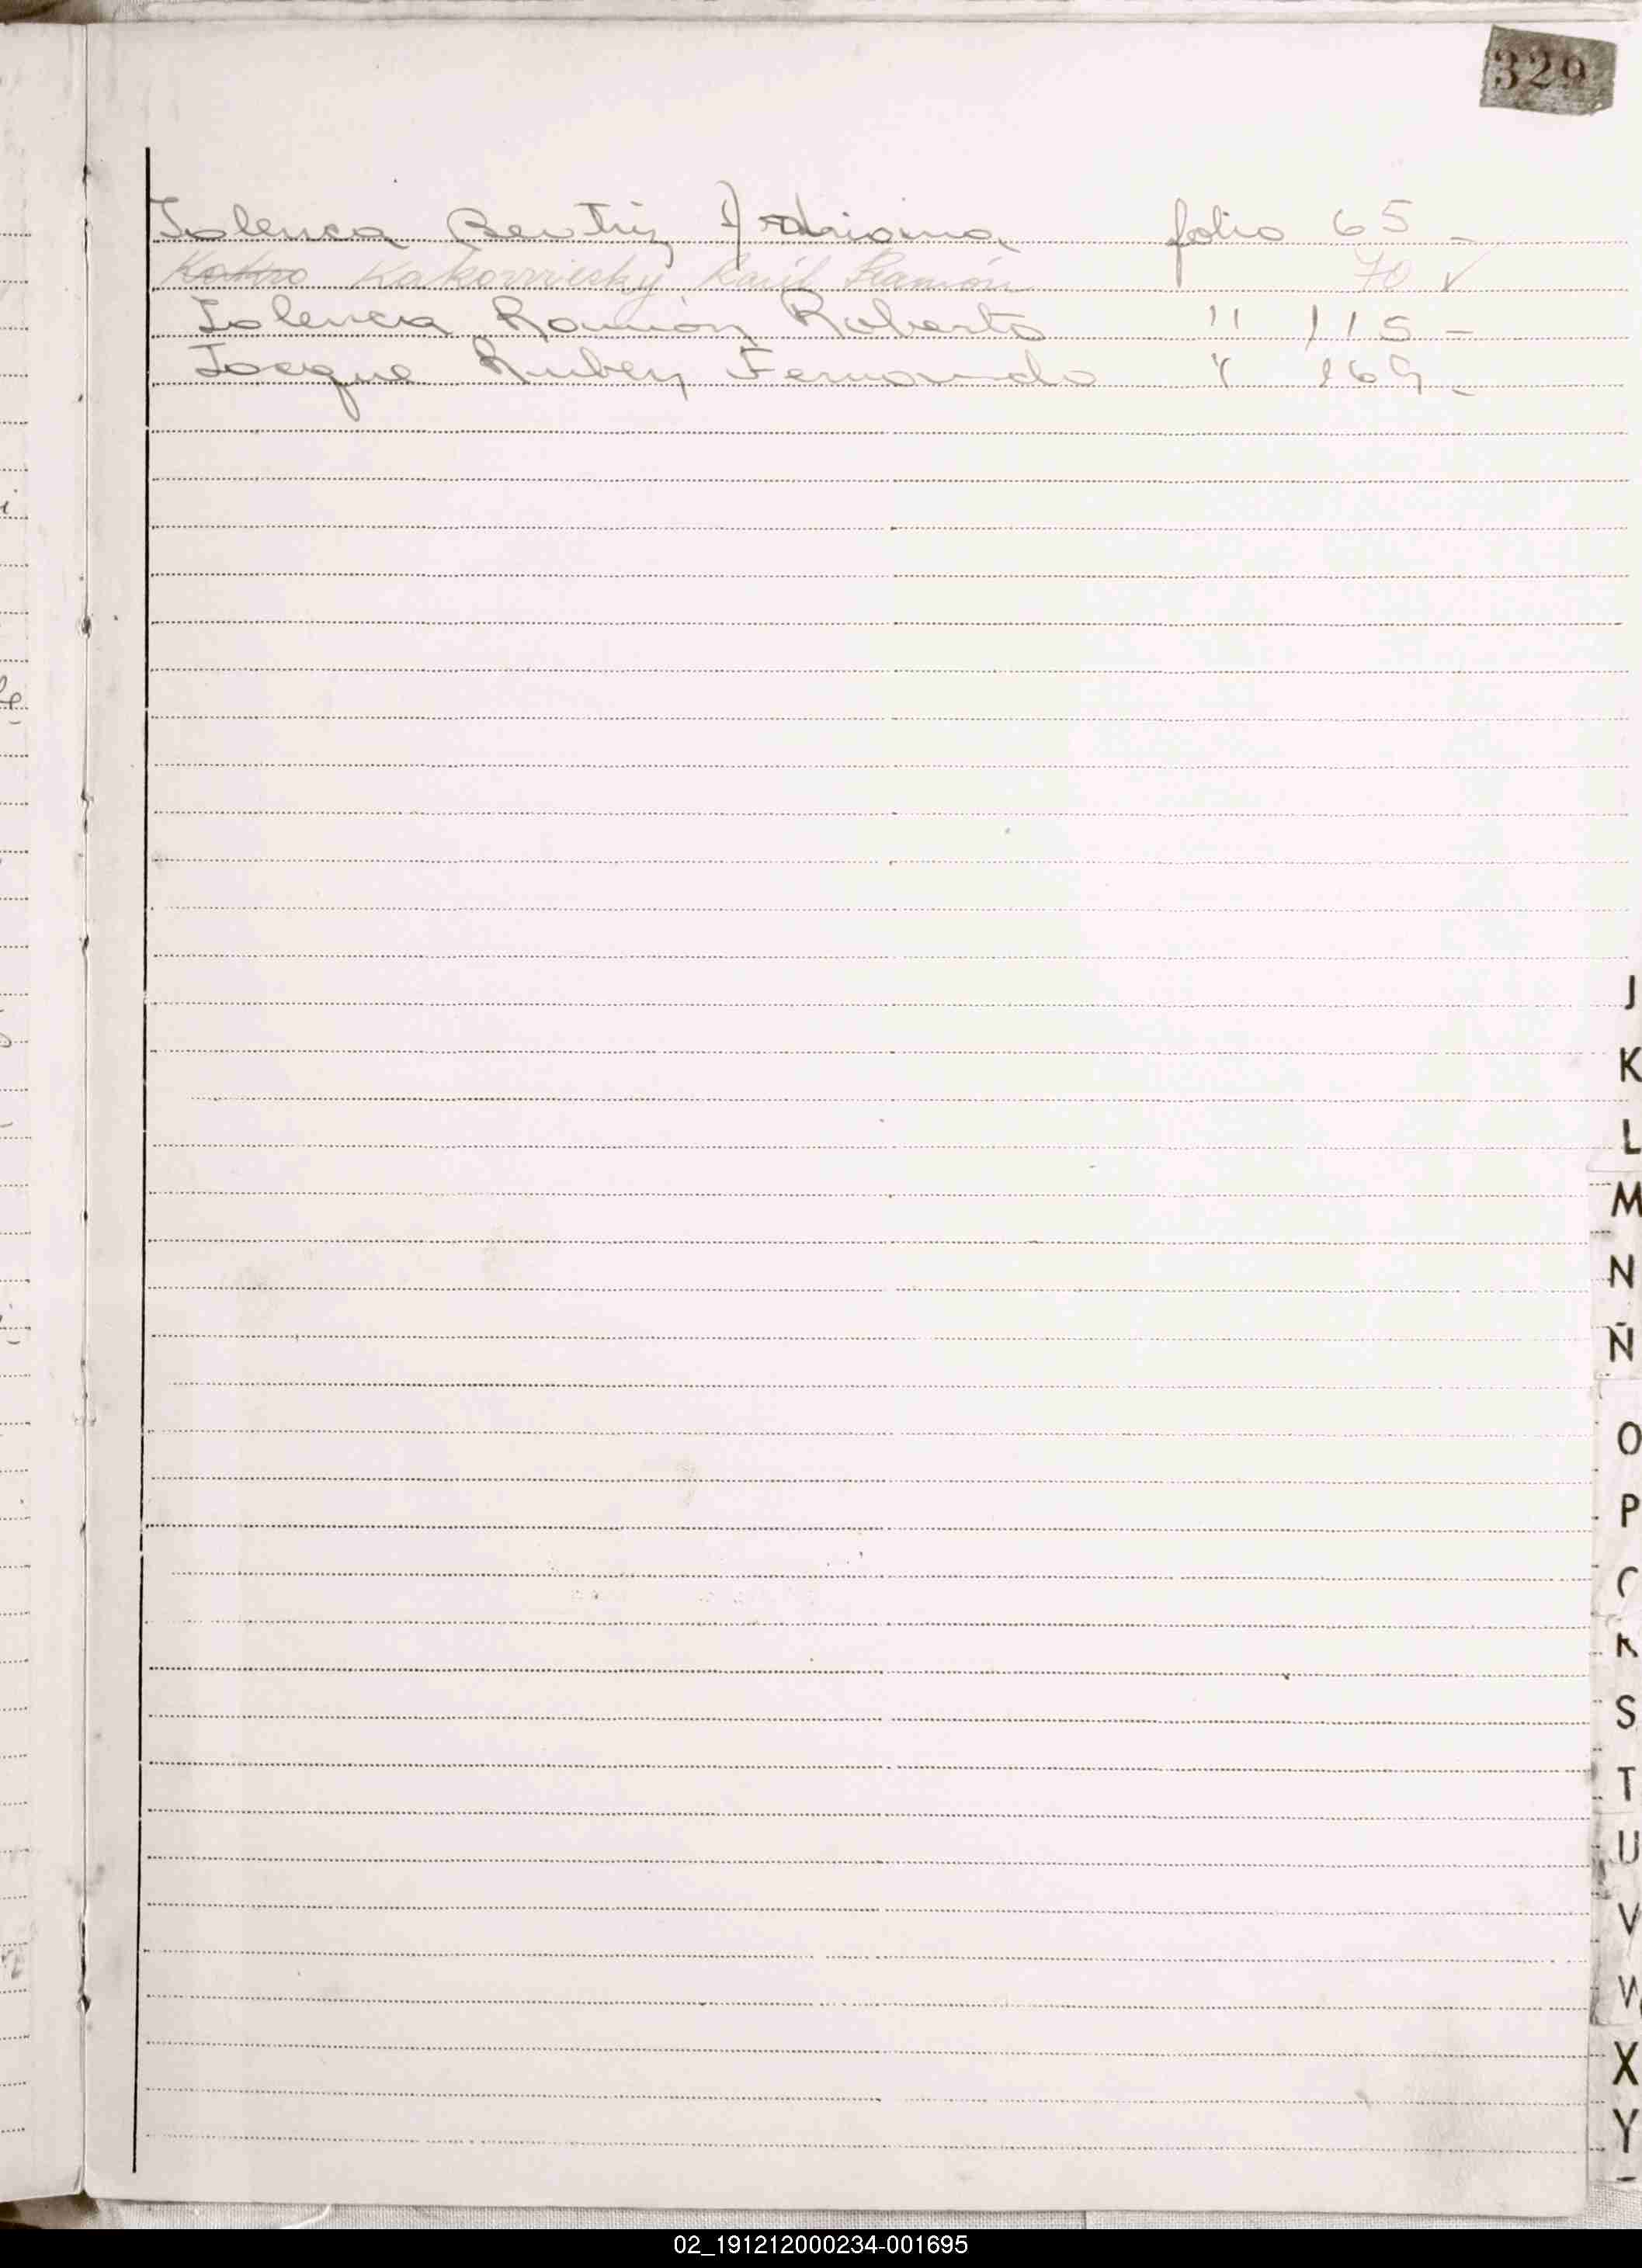 329
Jolenca Beatriz Adriana folio 65 -
Kakorriesky Raúl Ramón 70 ✓
Jolenca Ramón Roberto " 115 -
Jocque Ruben Fernando " 169 -
J
K
L
M
N
Ñ
O
P
R
S
T
U
V
W
X
Y
02_191212000234-001695